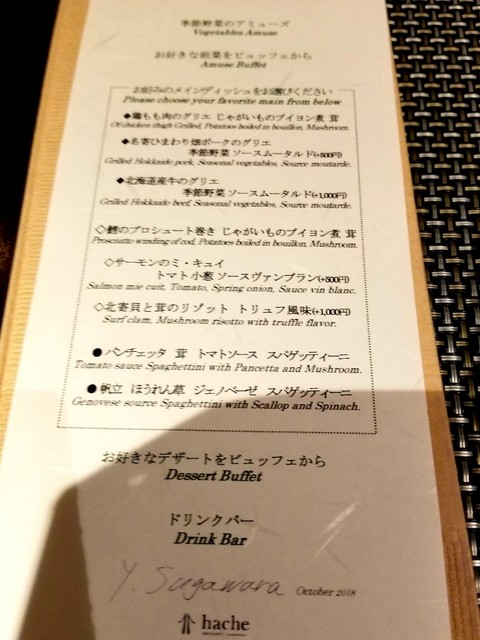 季節野菜のアミューズ
Vegetables Amuse
お好きな前菜をビュッフェから
Amuse Buffet
お好みのメインディッシュをお選びください
Please choose your favorite main from below
◆鶏もも肉のグリエ じゃがいものブイヨン煮 茸
Of chicken thigh Grilled, Potatoes boiled in bouillon, Mushroom.
◆名寄ひまわり畑ポークのグリエ
季節野菜 ソースムータルド(+500円)
Grilled Hokkaido pork, Seasonal vegetables, Source moutarde.
◆北海道産牛のグリエ
季節野菜 ソースムータルド(+1,000円)
Grilled Hokkaido beef, Seasonal vegetables, Source moutarde.
◇鱈のプロシュート巻き じゃがいものブイヨン煮 茸
Prosciutto winding of cod, Potatoes boiled in bouillon, Mushroom.
◇サーモンのミ・キュイ
トマト 小葱 ソースヴァンブラン(+500円)
Salmon mie cuit, Tomato, Spring onion, Sauce vin blanc.
◇北寄貝と茸のリゾット トリュフ風味(+1,000円)
Surf clam, Mushroom risotto with truffle flavor.
●パンチェッタ 茸 トマトソース スパゲッティーニ
Tomato sauce Spaghettini with Pancetta and Mushroom.
●帆立 ほうれん草 ジェノベーゼ スパゲッティーニ
Genovese source Spaghettini with Scallop and Spinach.
お好きなデザートをビュッフェから
Dessert Buffet
ドリンクバー
Drink Bar
Y. Sugawara October 2018
hache